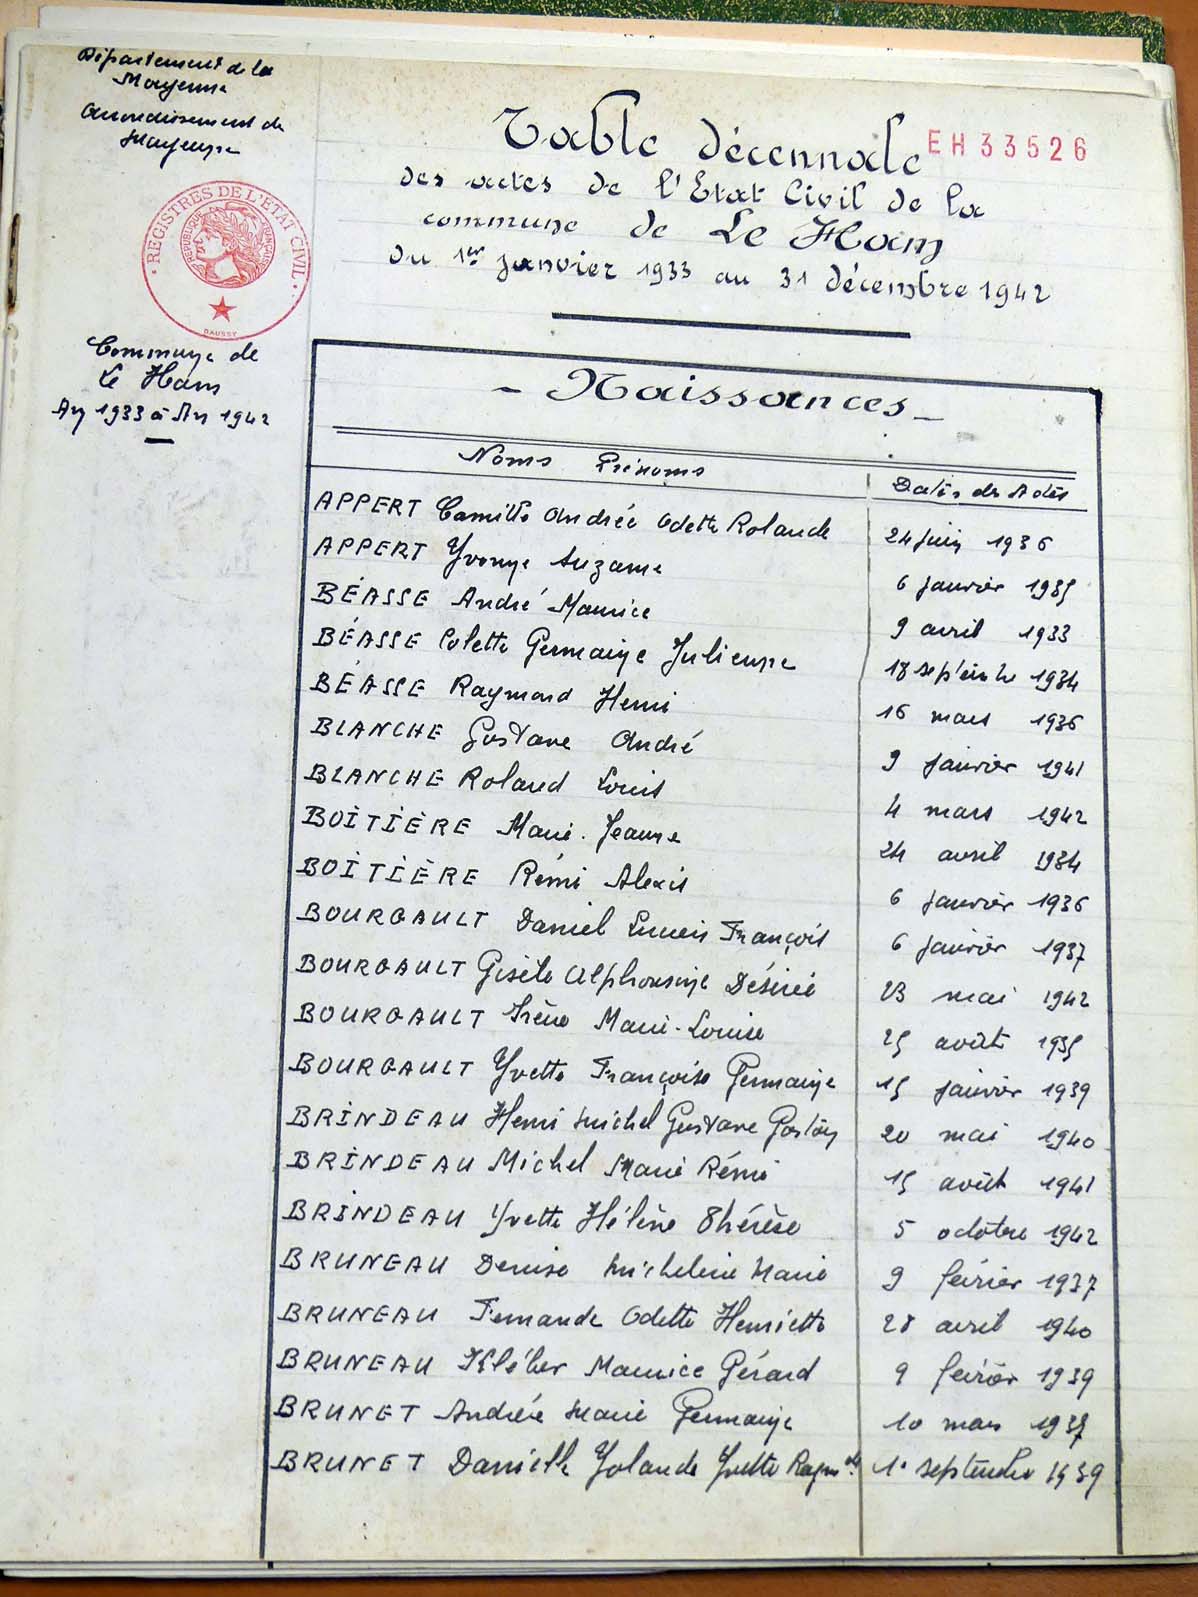 Département de la
Mayenne
Arrondissement de
Mayenne
REGISTRES DE L'ETAT CIVIL
REPUBLIQUE FRANÇAISE
DAUSSY
Commune de
Le Ham
An 1933 à An 1942
Table décennale
EH33526
des actes de l'Etat Civil de la
commune de Le Ham
du 1er janvier 1933 au 31 décembre 1942
- Naissances -
Noms Prénoms Dates des Actes
APPERT Camille Andrée Odette Rolande 24 juin 1936
APPERT Yvonne Suzanne 6 janvier 1935
BÉASSE André Maurice 9 avril 1933
BÉASSE Colette Germaine Julienne 18 septembre 1934
BÉASSE Raymond Henri 16 mars 1936
BLANCHE Gustave André 9 janvier 1941
BLANCHE Roland Louis 4 mars 1942
BOITIÈRE Marie-Jeanne 24 avril 1934
BOITIÈRE Rémi Alexis 6 janvier 1936
BOURGAULT Daniel Lucien François 6 janvier 1937
BOURGAULT Gisèle Alphonsine Désirée 23 mai 1942
BOURGAULT Irène Marie-Louise 25 août 1935
BOURGAULT Yvette Françoise Germaine 15 janvier 1939
BRINDEAU Henri Michel Gustave Gaston 20 mai 1940
BRINDEAU Michel Marie Rémi 15 août 1941
BRINDEAU Yvette Hélène Thérèse 5 octobre 1942
BRUNEAU Denise Micheline Marie 9 février 1937
BRUNEAU Fernande Odette Henriette 28 avril 1940
BRUNEAU Kléber Maurice Gérard 9 février 1939
BRUNET Andrée Marie Germaine 10 mars
BRUNET Danielle Yolande Yvette Raymde 1er septembre 1939